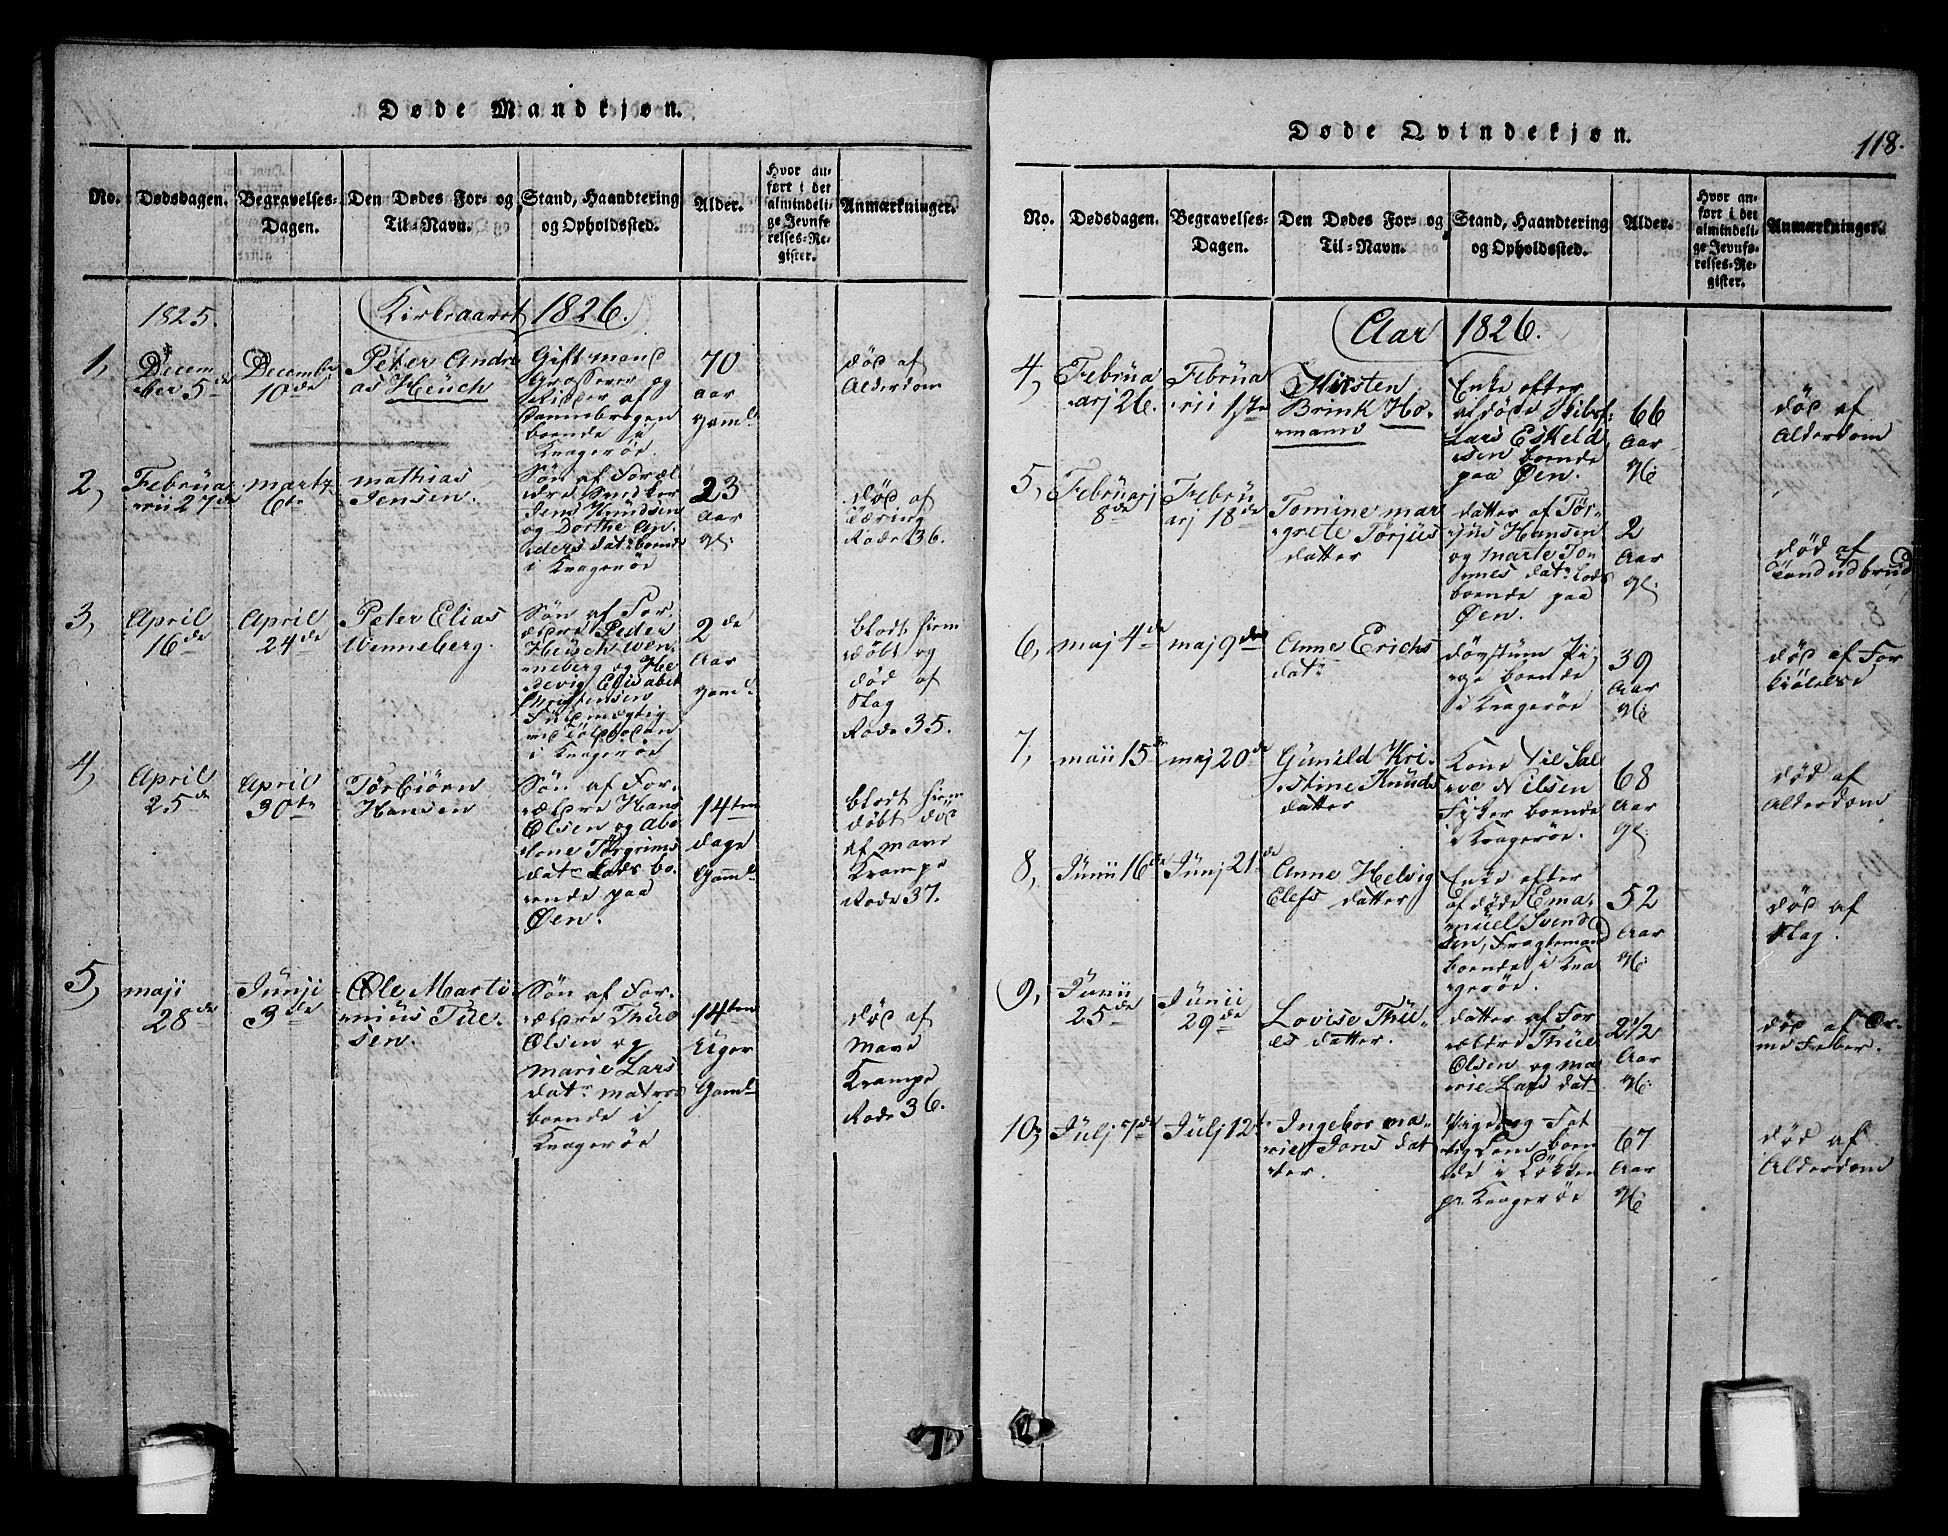 Døde Mandkjøn.
No.
Dødsdagen.
Begravelses-
Dagen.
Den Dødes For- og
Til-Navn.
Stand, Haandtering
og Opholdssted.
Alder.
Hvor an-
ført i det
almindeli-
ge Jevnfø-
relses-Re-
gister.
Anmærkninger.
Kirkeaaret 1826.
1,
1825.
Decem
ber 5de
Decembr
10de
Peter Andre
as Heüch
Gift mand
Grosserer og
Ridder af
Dannebrogen
boende i
Kragerøe
70
Aar
gaml.
død af
Alderdom
2,
Februa
rii 27de
martz
6te
mathias
Jensen.
Søn af Foræl
dre Snedker
Jens Knudsen
og Dorthe An,
ders dat: boende
i Kragerøe
23
Aar
gl.
død af
Tæring
Rode 36.
3,
April
16de
April
24de
Peter Elias
Wenneberg.
Søn af For,
ældre Peder
Heüsch Wen,
neberg og He
devig Elisabet
Christensen
i Kragerøe
2de
Aar
gaml.
blodt hiem
døbt og
død af
Slag
Rode 35.
4,
April
25de
April
30te
Torbiörn
Hansen
Søn af For,
ældre Hans
Olsen og Abe
lone Torgrims
dat Lods bo,
ende paa
Øen.
14ten
dage
Gaml.
blodt hiem
døbt død
af mave
Krampe
Rode 37.
5,
maji
28de
Junji
3de
Ole Marti,
niüs Tüe,
sen.
Søn af For,
ældre Thüe
Olsen og
marie Lars
dat. matros
boende i
Kragerøe
14ten
Uger
Gaml.
død af
Mave
Krampe
Rode 36.
Døde Qvindekjøn.
118.
No.
Dødsdagen.
Begravelses-
Dagen.
Den Dødes For- og
Til-Navn.
Stand, Haandtering
og Opholdssted.
Alder.
Hvor an-
ført i det
almindeli-
ge Jevnfø-
relses-Re-
gister.
Anmærkninger.
Aar 1826.
4,
Februa
arj 26.
Februa
rii 1ste
Kirsten
Brink Ho,
mand
Enke efter
afdøde Skibsf:
Lars Eskeld
sen boende
paa Øen.
66
Aar
gl.
død af
Alderdom
5,
Februarj
8de
Febru
arj 18de
Tomine mar
grete Torjüs
datter
datter af Tor,
jus Hansen
og marte To,
nnes dat. Lods
boende paa
Øen.
2
Aar
gl.
død af
Tandudbrud
6,
maj 4de
maj 9de
Anne Erichs
dat.
døvstum Pi,
ge boende
i Kragerøe
39
Aar
gl.
død af For
kiølelse
7,
maii 15de
maj 20de
Günild Kri,
stine Knüds
datter
Kone til Sal
ve Nilsen
Fisker boende
i Kragerøe.
68
Aar
gl.
død af
Alderdom
8,
Junii 16de
Junj 21de
Anne Helvig
Elefs datter
Enke efter
afdøde Ema,
nuel Svend
sen, Fragtemand
boende i Kra
gerøe.
52
Aar
gl.
død af
Slag.
9,
Junii
25de
Junii
29de
Lovise Thü,
es datter.
datter af For
ældre Thüe
Olsen og ma
rie Lars dat
2 1/2
Aar
gl.
død af Or,
me Feber.
10,
Julj 7de
Julj 12te
Ingebor ma,
rie Jons dat
ter.
Pige og Fat
tig Lem boen
de i Løkken
pr Kragerøe
67
Aar
gl.
død af
Alderdom